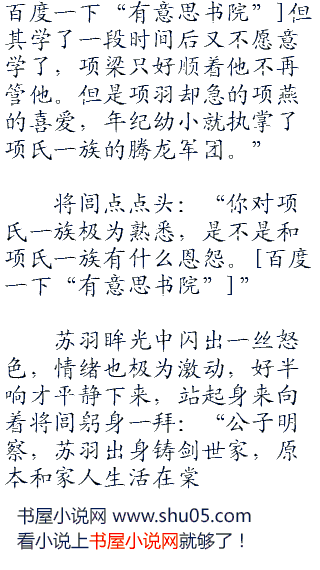 百度一下“有意思书院”]但
其学了一段时间后又不愿意
学了，项梁只好顺着他不再
管他。但是项羽却急的项燕
的喜爱，年纪幼小就执掌了
项氏一族的腾龙军团。”
将闾点点头：“你对项
氏一族极为熟悉，是不是和
项氏一族有什么恩怨。[百度
一下“有意思书院”]”
苏羽眸光中闪出一丝怒
色，情绪也极为激动，好半
响才平静下来，站起身来向
着将闾躬身一拜：“公子明
察，苏羽出身铸剑世家，原
本和家人生活在棠
书屋小说网 www.shu05.com
看小说上书屋小说网就够了！